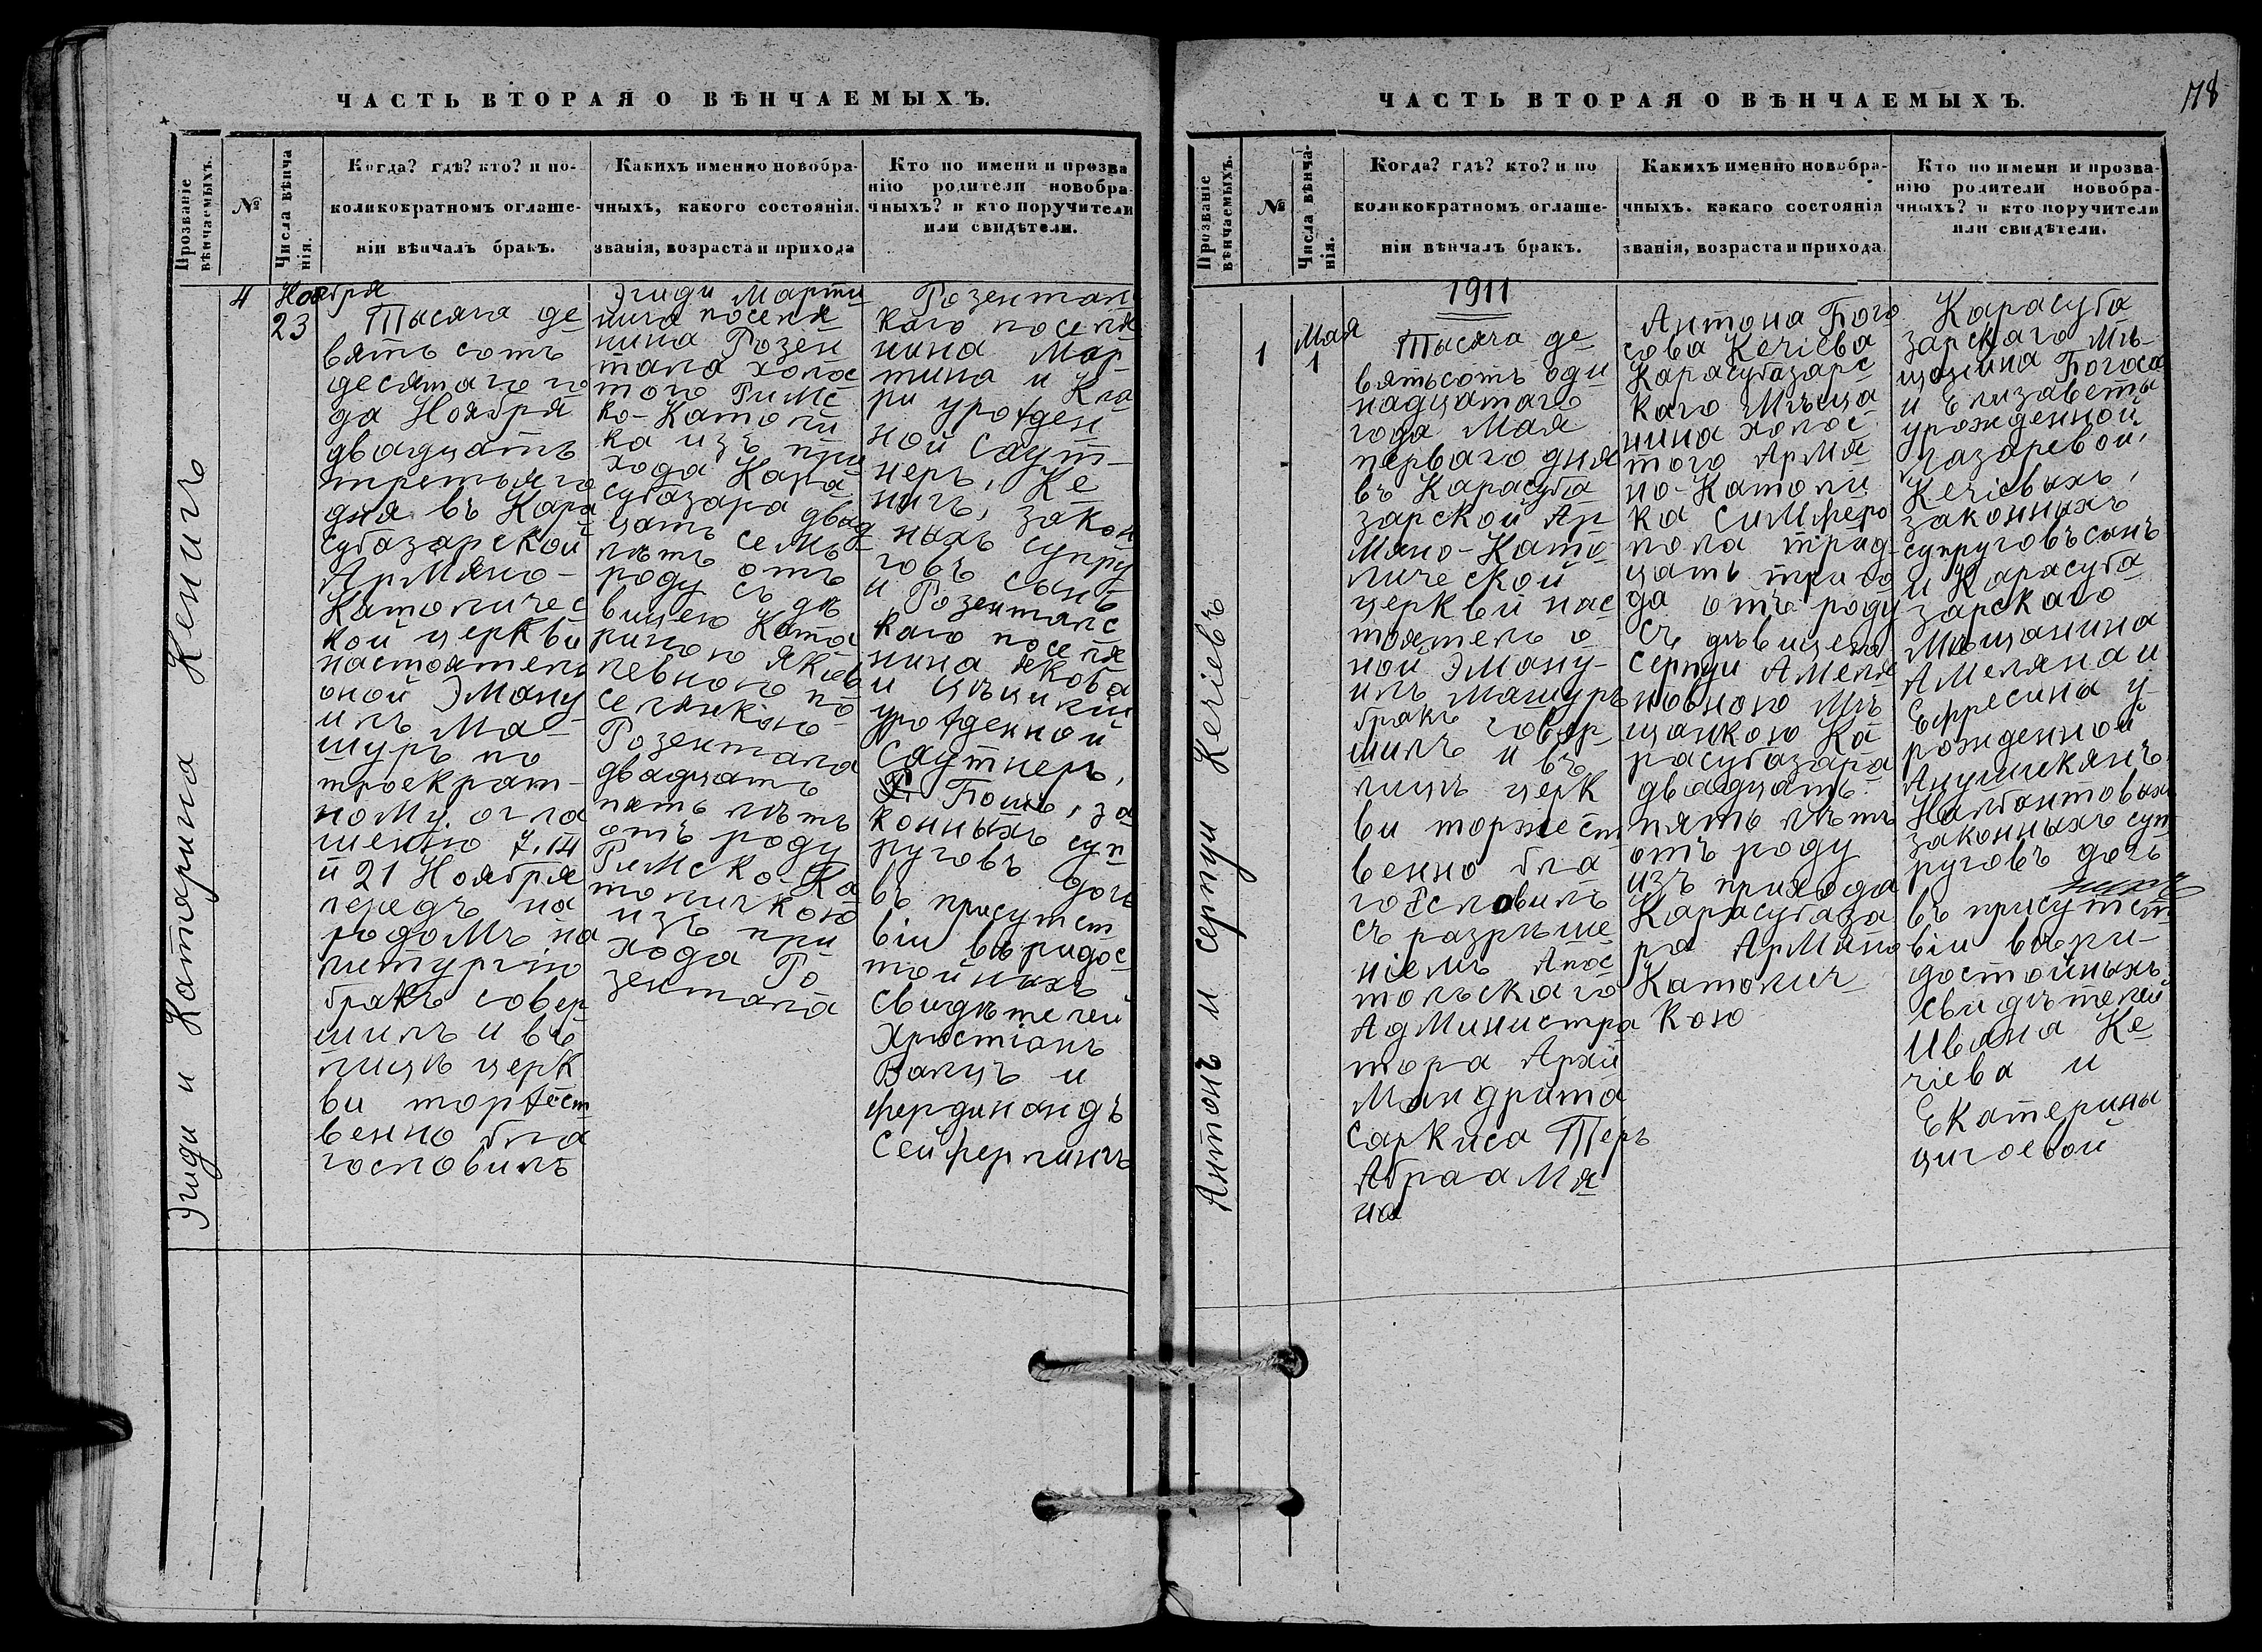 ЧАСТЬ ВТОРАЯ О ВѢНЧАЕМЫХЪ.
Прозваніе
вѣнчаемыхъ.
№
Числа вѣнча
нія.
Когда? гдѣ? кто? и по-
коликократномъ оглаше-
ніи вѣнчалъ бракъ.
Какихъ именно новобра-
чныхъ, какого состоянія.
званія, возраста и прихода
Кто по имени и прозва
нію родители новобра-
чныхъ? и кто поручители
или свидѣтели.
Эгиди и Катарина Кенигъ
4
Ноября
23
Тысяча де
вять сотъ
десятаго го
да Ноября
двадцать
третьяго
дня въ Кара
субазарской
Армяно-
Католичес
кой церкви
настоятель
оной Эману
илъ Ма-
шуръ по
троекрат-
ному огла
шенію 7, 14
и 21 Ноября
передъ на
родомъ на
литургію
бракъ совер
шилъ и въ
лицѣ церк
ви торжест
венно бла
гословилъ
Эгиди Марти
нича поселя
нина Розен
тала холос
того Римс
ко-Католи
ка изъ при
хода Кара
субазара двад
цать семь
лѣтъ отъ
роду съ дѣ
вицею Ката
риною Якоб
левною по
селянкою
Розентала
двадцать
пять лѣтъ
отъ роду
Римско Ка
толичкою
изъ при
хода Ро
зентала
Розенталь
каго поселя
нина Мар
тина и Кла
ри урожден
ной Саут-
неръ, Ке
нигъ, закон
ныхъ супру
говъ сынъ
и Розенталс
каго поселя
нина Якова
и Цѣциліи
урожденной
Саутнеръ,
Бошъ, за
конныхъ суп
руговъ дочь
въ присутст
віи вѣридос
тойныхъ
свидѣтелей
Христіанъ
Валцъ и
Фердинандъ
Сейферлингъ
ЧАСТЬ ВТОРАЯ О ВѢНЧАЕМЫХЪ.
78
Прозваніе
вѣнчаемыхъ.
№
Числа вѣнча-
нія.
Когда? гдѣ? кто? и по
коликократномъ оглаше-
ніи вѣнчалъ бракъ.
Какихъ именно новобра-
чныхъ. какаго состоянія
званія, возраста и прихода.
Кто по имени и прозва-
нію родители новобра-
чныхъ? и кто поручители
или свидѣтели.
Антонъ и Серпуи Кечіевъ
1
Мая
1
1911
Тысяча де
вятьсотъ оди
надцатаго
года Мая
перваго дня
въ Карасуба
зарской Ар
мяно-Като
лической
церкви нас
тоятель о
ной Эману-
илъ Машуръ
бракъ совер
шилъ и въ
лицѣ церк
ви торжест
венно бла
гословилъ
съ разрѣше
ніемъ Апос
тольскаго
Администра
тора Архи
мандрита
Саркиса Теръ
Абраамя
на
Антона Бого
сова Кечіева
Карасубазарс
каго мѣща
нина холос
того Армя
но-Католи
ка Симферо
пола трид-
цать три го
да отъ роду
съ дѣвицею
Серпуи Амеля
новною мѣ
щанкою Ка
расубазара
двадцать
пять лѣтъ
отъ роду
изъ прихода
Карасубаза
ра Армяно
Католич
кою
Карасуба
зарскаго мѣ-
щанина Богоса
и Елизаветы
урожденной
Лазаревой,
Кечіевыхъ,
законныхъ
супруговъ сынъ
и Карасуба
зарскаго
мѣщанина
Амеляна и
Ефресины у-
рожденной
Анушикянъ
Налбантовых
законныхъ суп
руговъ дочь
въ присутст
віи вѣри-
достойныхъ
свидѣтелей
Ивана Ке
чіева и
Екатерины
Цигоевой